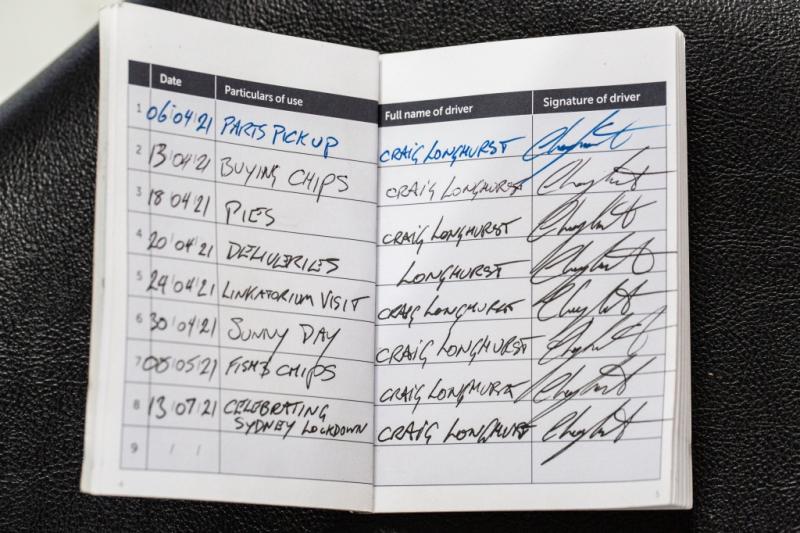 Date Particulars of use Full name of driver Signature of driver
1 06 04 21 PARTS PICK UP CRAIG LONGHURST
2 13 04 21 BUYING CHIPS CRAIG LONGHURST
3 18 04 21 PIES CRAIG LONGHURST
4 20 04 21 DELIVERIES LONGHURST
5 29 04 21 LINKATORIUM VISIT CRAIG LONGHURST
6 30 04 21 SUNNY DAY CRAIG LONGHURST
7 05 21 FISH & CHIPS CRAIG LONGHURST
8 13 07 21 CELEBRATING
SYDNEY LOCKDOWN CRAIG LONGHURST
9 / /
4 5